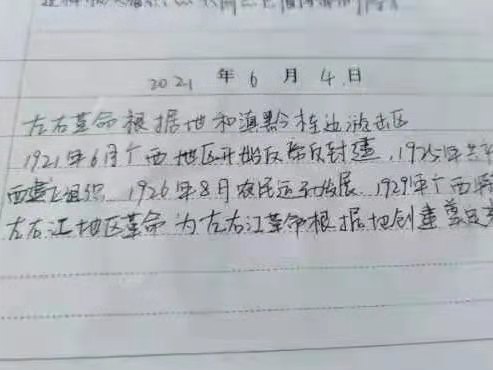 2021 年 6 月 4 日
左右革命根据地和滇黔桂边游击区
1921年6月广西地区开始反帝反封建,1925年
西建立组织 1926年8月农民运动发展 1929年广西
左右江地区革命为左右江革命根据地创建奠定